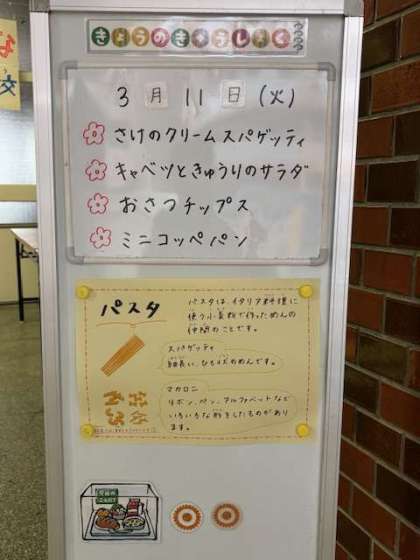 きょうのきゅうしょく
3月11日(火)
さけのクリームスパゲッティ
キャベツときゅうりのサラダ
おさつチップス
ミニコッペパン
パスタ
パスタは、イタリア料理に
使う小麦粉で作っためんの
仲間のことです。
スパゲッティ
細長い、ひも状のめんです。
マカロニ
リボン、ペン、アルファベットなど
いろいろな形をしたものがあり
ます。